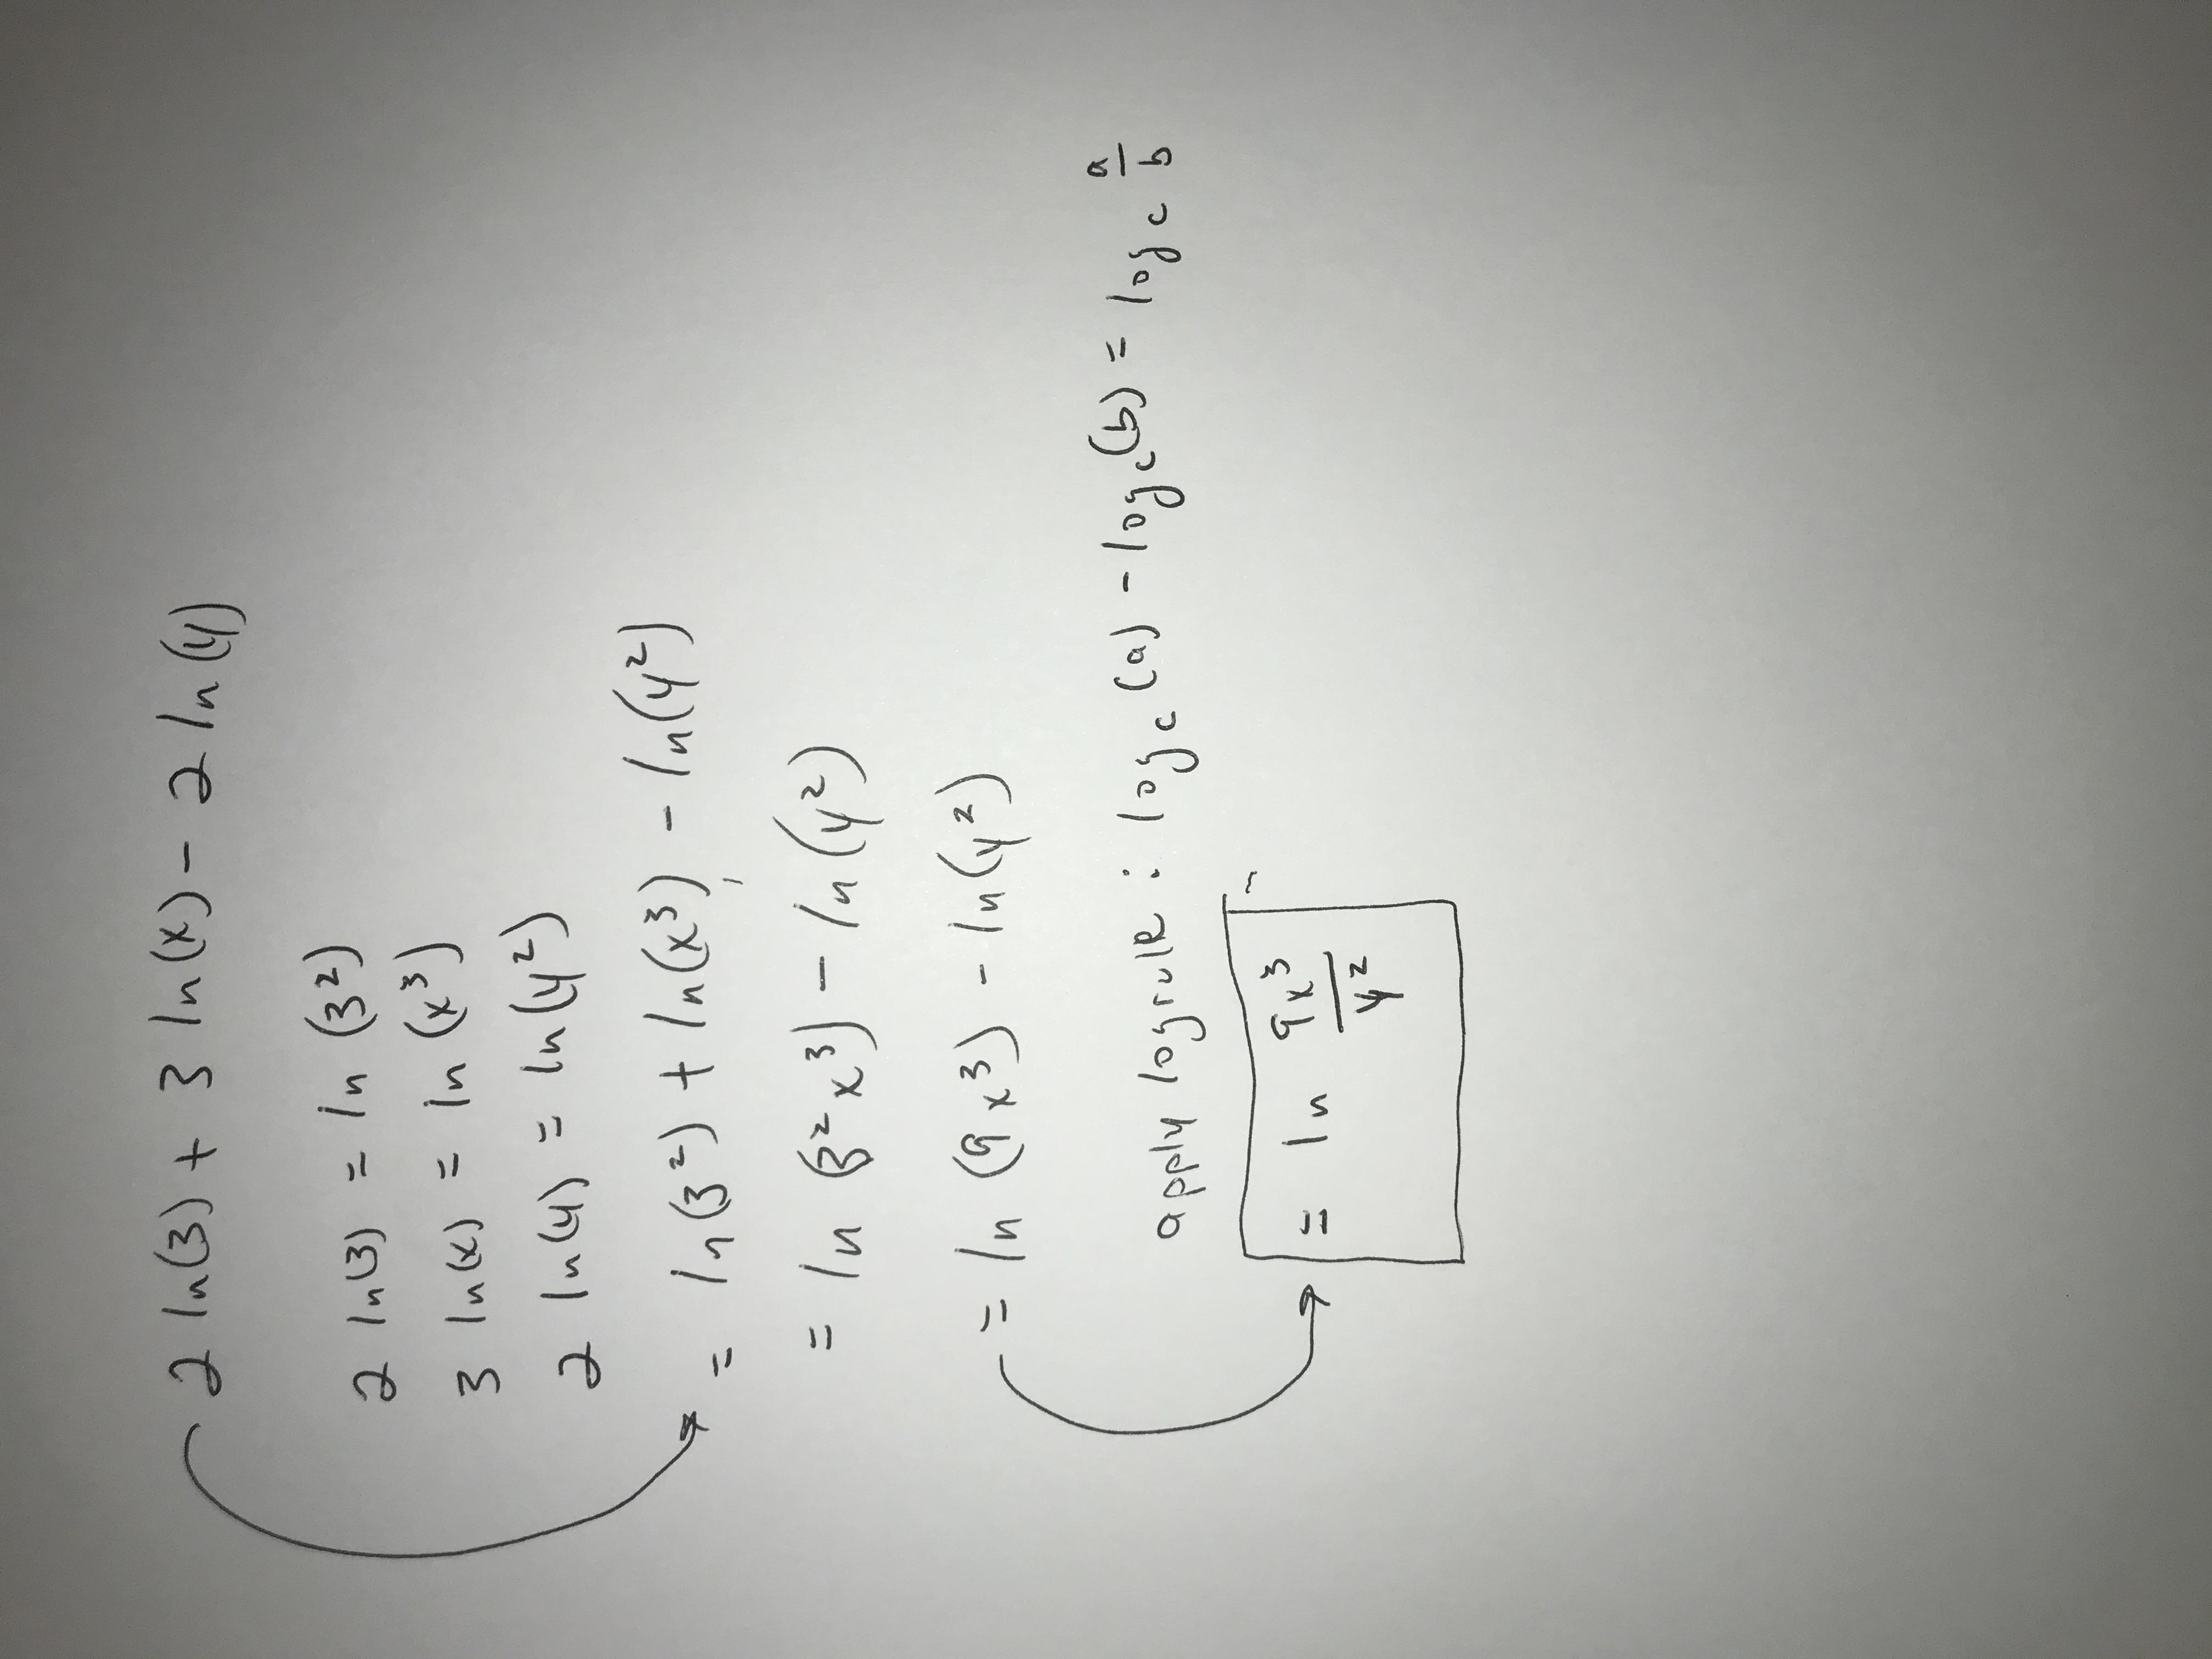 2 ln(3) + 3 ln(x) - 2 ln(y)
2 ln(3) = ln (3²)
3 ln(x) = ln (x³)
2 ln(y) = ln(y²)
= ln(3²) + ln(x³) - ln(y²)
= ln (3²x³) - ln (y²)
= ln (9x³) - ln(y²)
apply log rule : log c (a) - log c (b) = log c a/b
= ln 9x³/y²